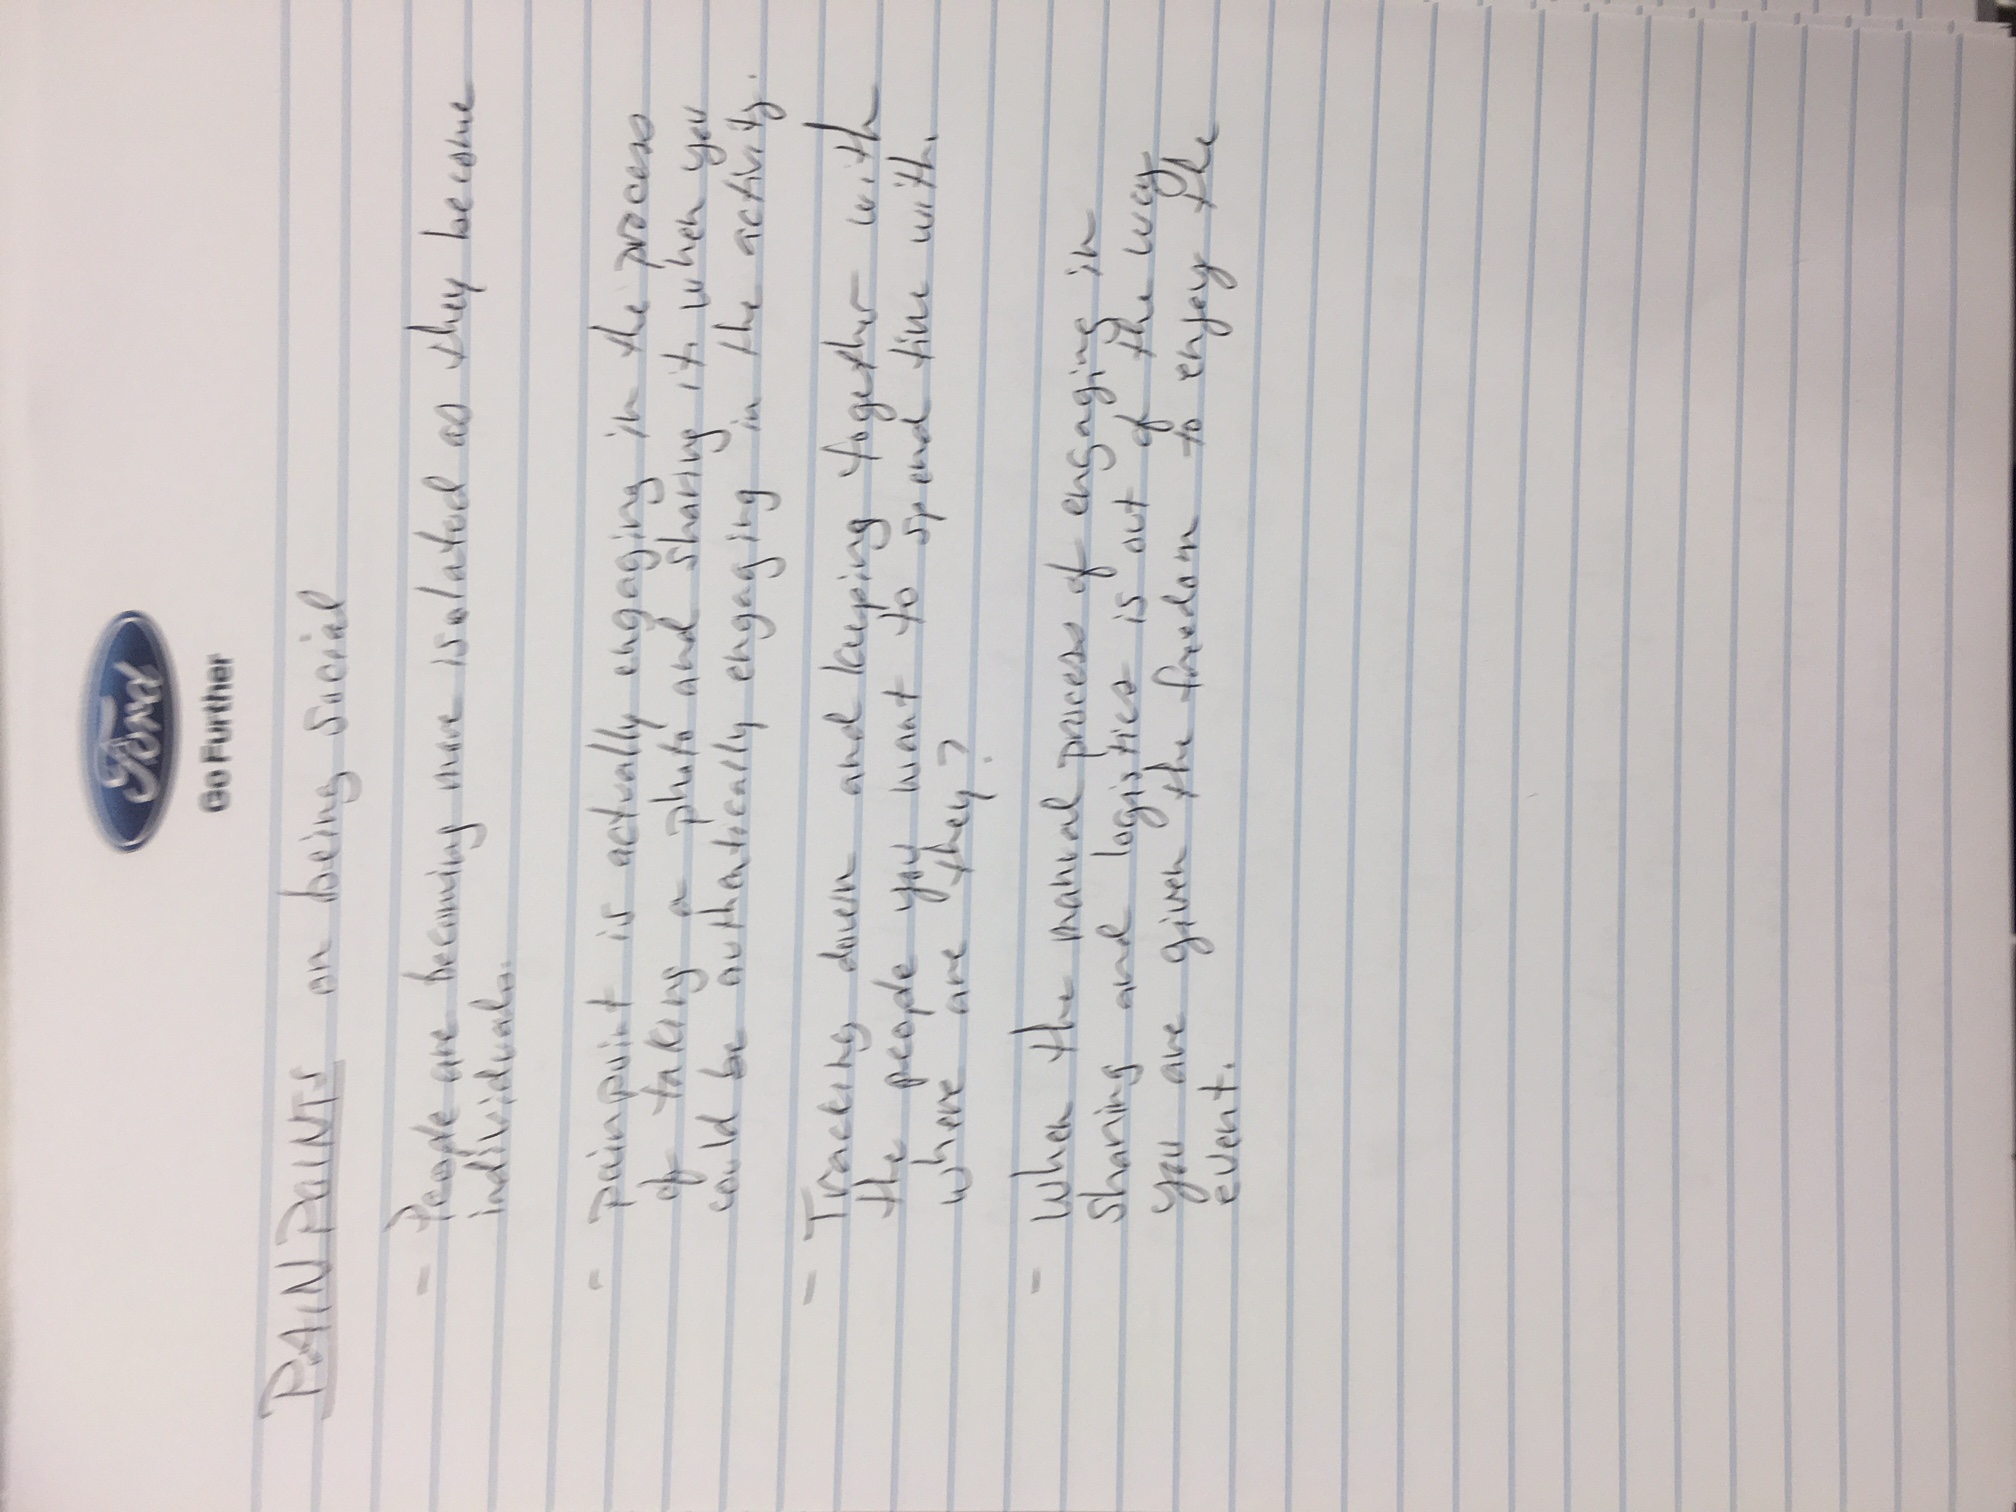 Ford
Go Further
PAINPOINTS on being social
- People are becoming more isolated as they become
individuals.
- painpoint is actually engaging in the process
of taking a photo and sharing it. when you
could be authentically engaging in the activity.
- Tracking down and keeping together with
the people you want to spend time with.
where are they?
- When the manual process of engaging in
sharing and logistics is out of the way
you are given the freedom to enjoy the
event.